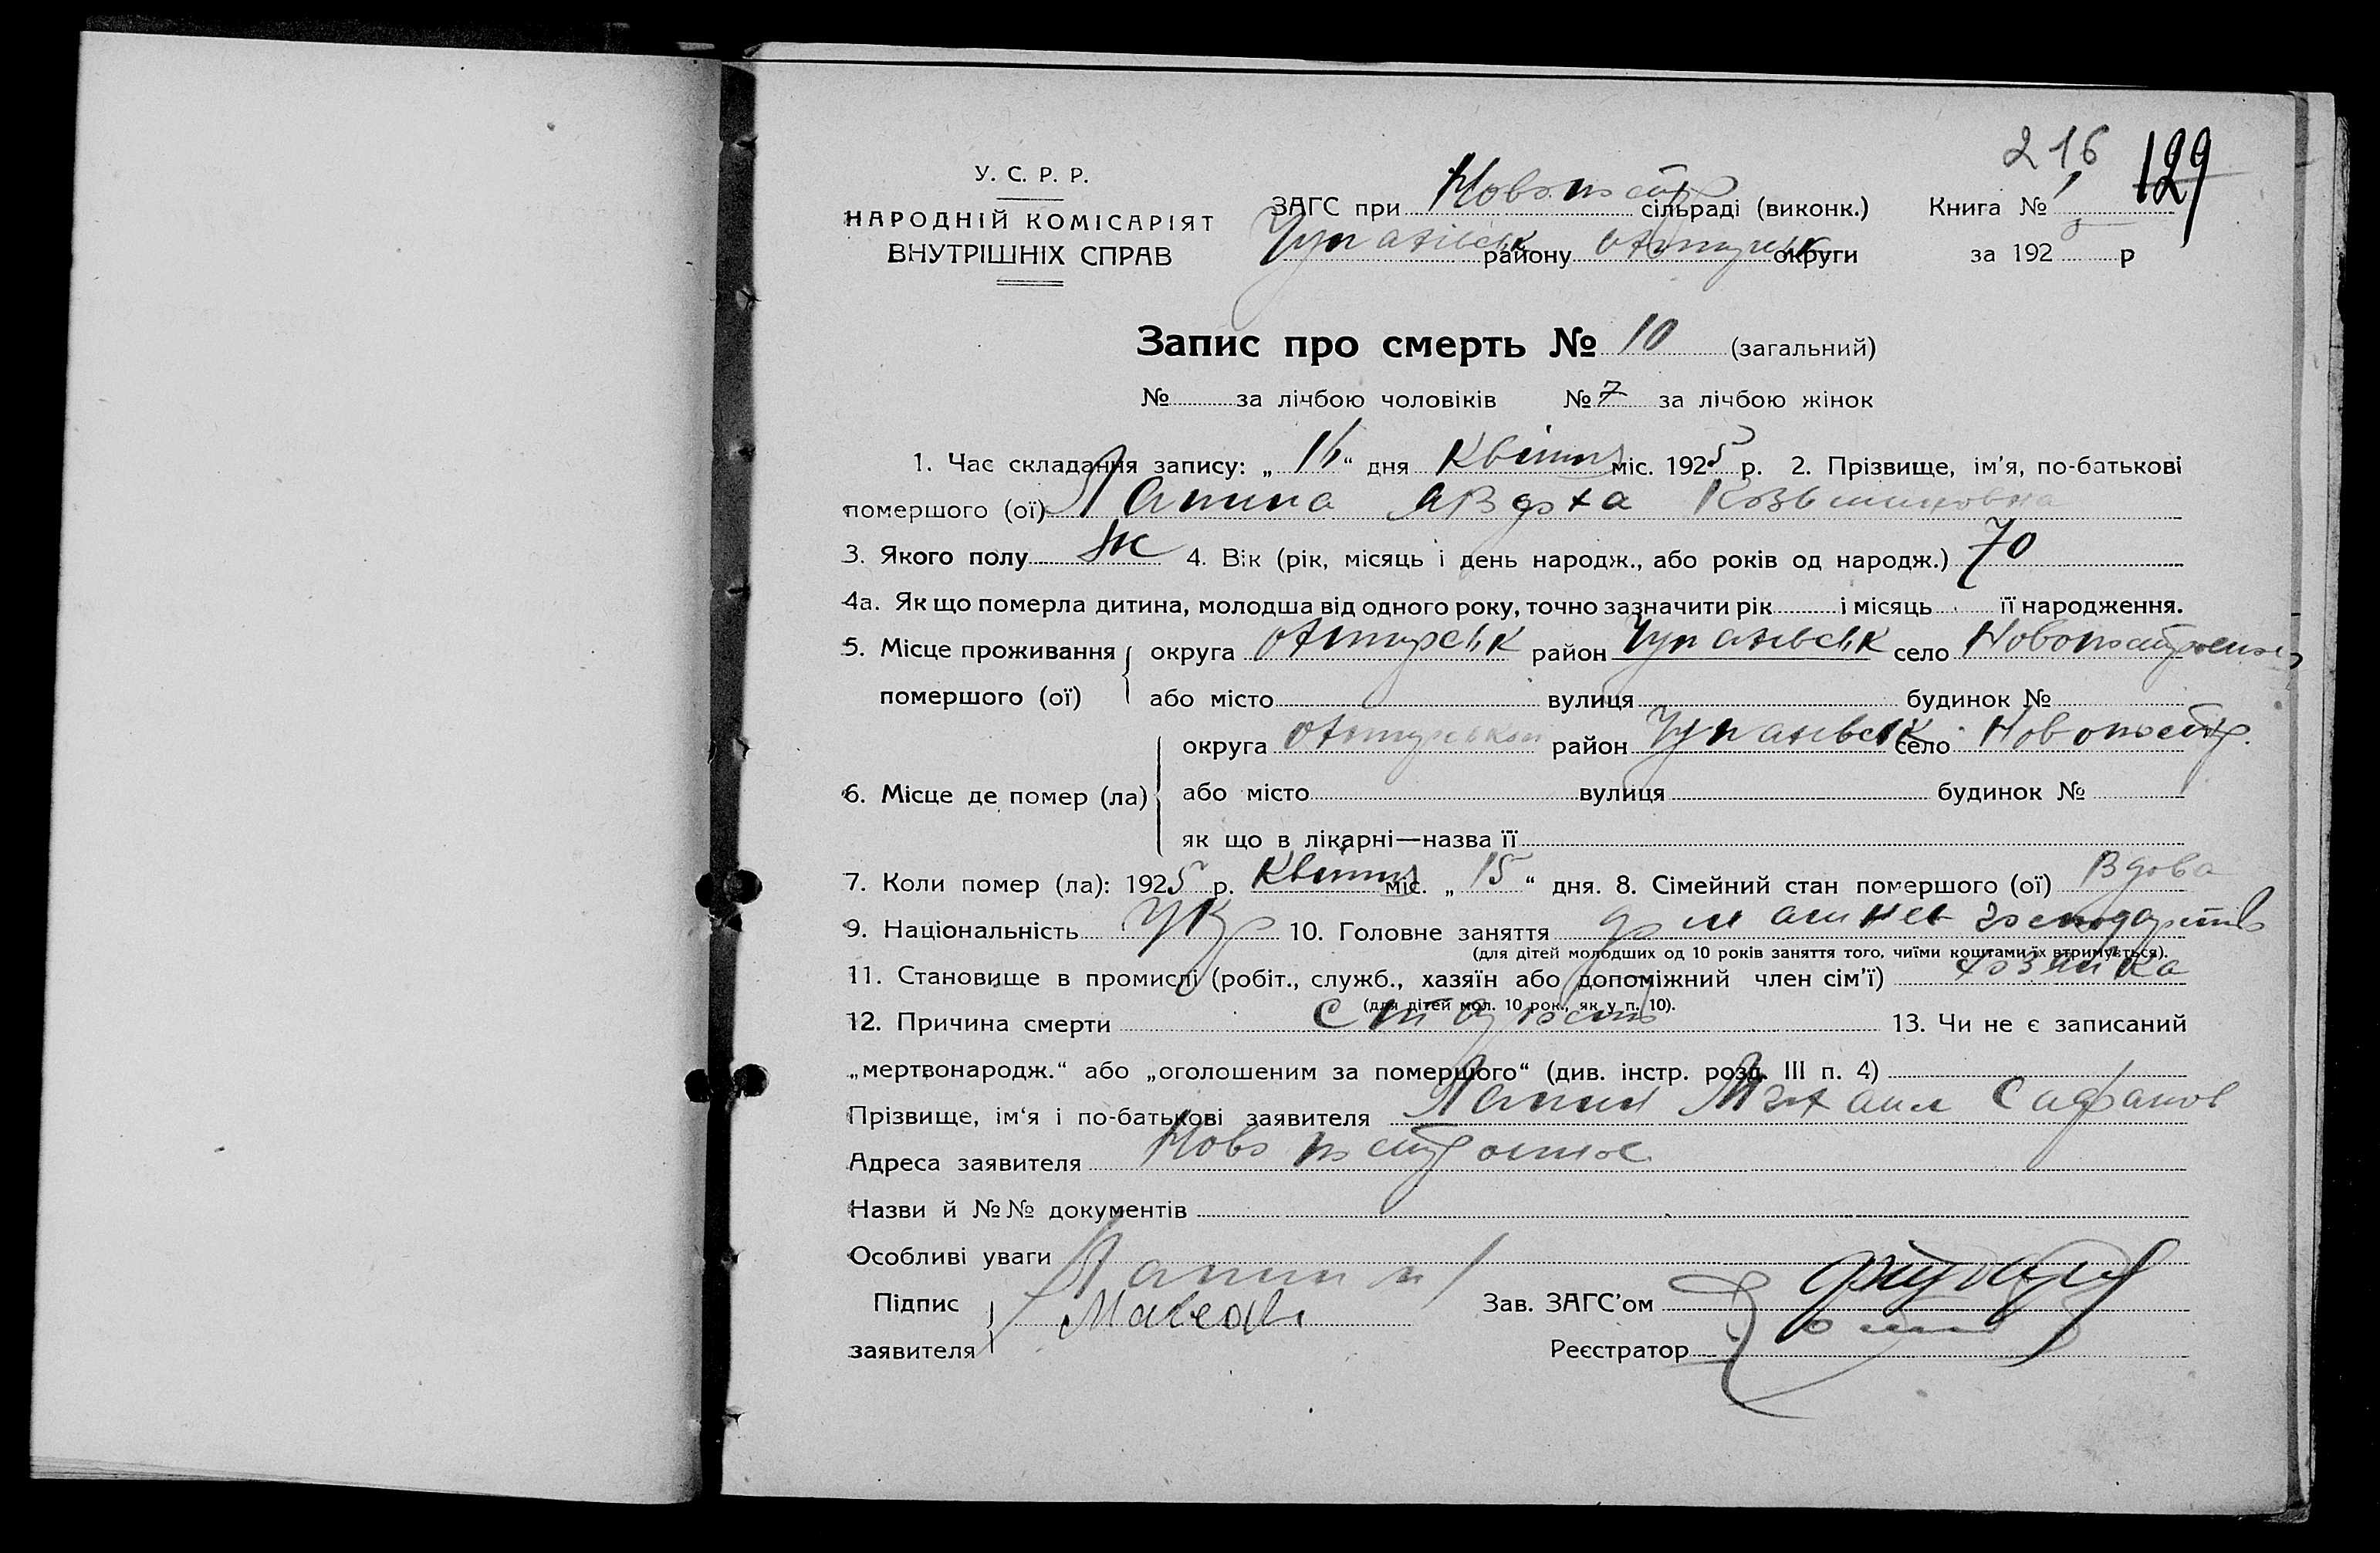 216 129
У. С. Р. Р.
НАРОДНІЙ КОМІСАРІЯТ
ВНУТРІШНІХ СПРАВ
ЗАГС при Новопостр сільраді (виконк.) Книга №
Чупахівськ району Охтирськ округи за 192 5 р
Запис про смерть № 10 (загальний)
№ за лічбою чоловіків № 7 за лічбою жінок
1. Час складання запису: „ 16 “ дня Квітня міс. 1925 р. 2. Прізвище, ім'я, по-батькові
помершого (ої) Лапина Авдоха
3. Якого полу Ж 4. Вік (рік, місяць і день народж., або років од народж.) 70
4а. Як що померла дитина, молодша від одного року, точно зазначити рік і місяць її народження.
5. Місце проживання округа Охтирськ район Чупахівськ село
помершого (ої) або місто вулиця будинок №
округа район Чупахівськ село Новопостр.
6. Місце де помер (ла) або місто вулиця будинок №
як що в лікарні—назва її
7. Коли помер (ла): 1925 р. Квітня міс. „ 15 “ дня. 8. Сімейний стан помершого (ої) Вдова
9. Національність Укр 10. Головне заняття
(для дітей молодших од 10 років заняття того, чиїми коштами їх втримується).
11. Становище в промислі (робіт., служб., хазяїн або допоміжний член сім'ї) хозяйка
(для дітей мол. 10 рок., як у п. 10).
12. Причина смерти старость 13. Чи не є записаний
„мертвонародж.“ або „оголошеним за помершого“ (див. інстр. розд. III п. 4)
Прізвище, ім'я і по-батькові заявителя Лапин Михаил Сафанов
Адреса заявителя
Назви й №№ документів
Особливі уваги
Підпис Лапин
заявителя
Зав. ЗАГС'ом
Реєстратор